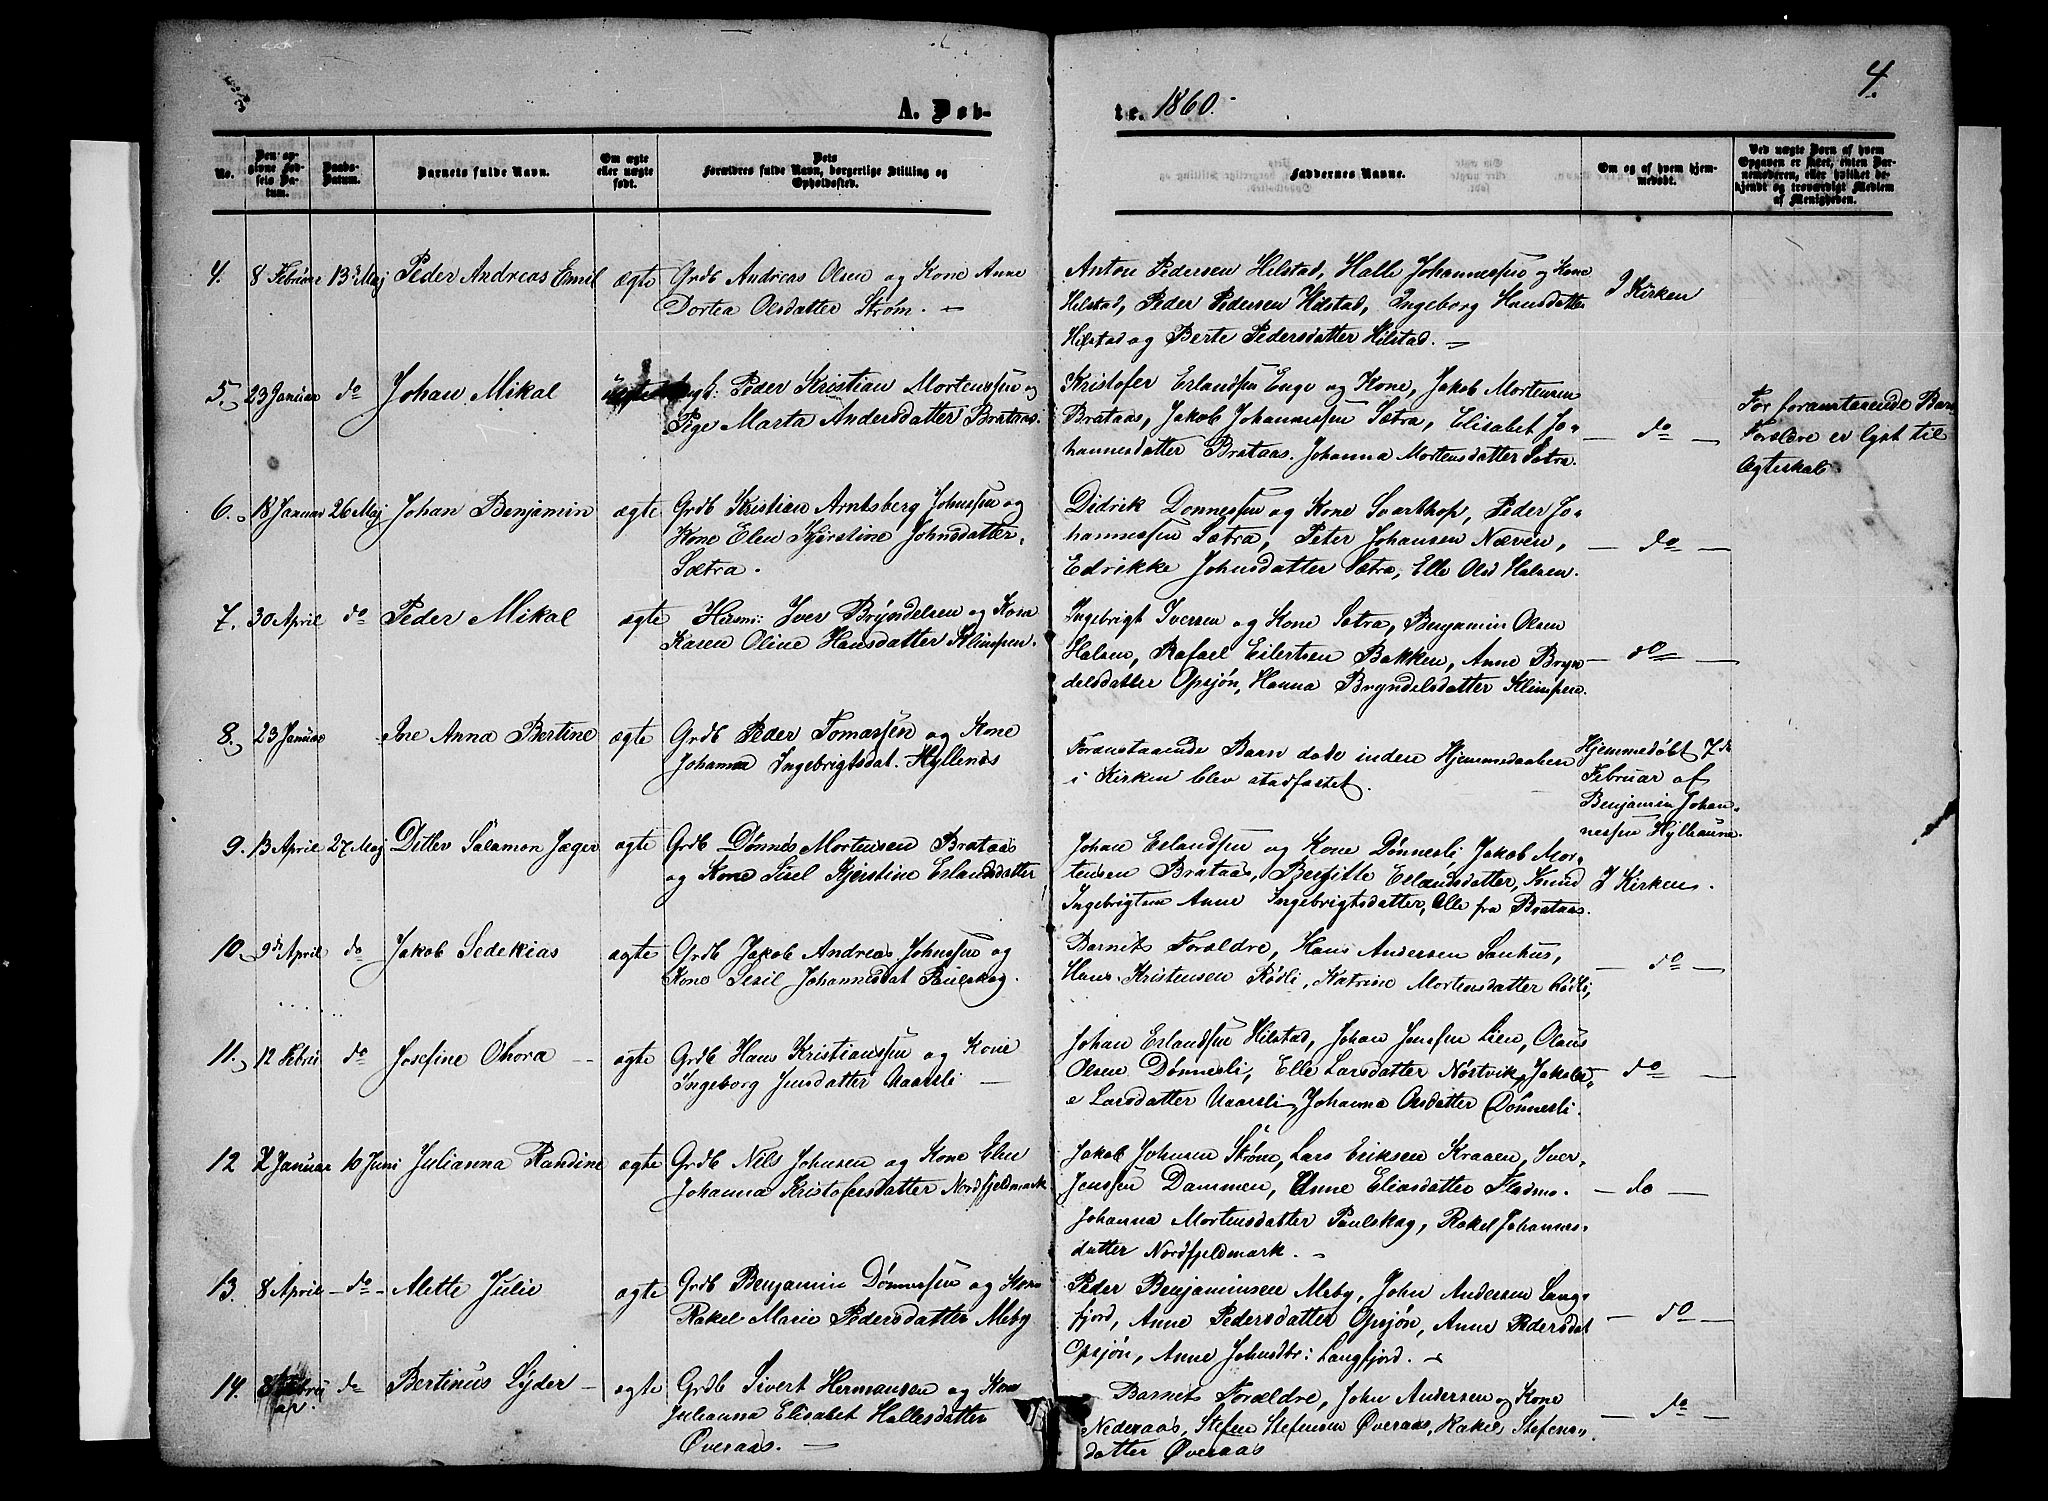 4.
A. Døb-
te. 1860.
No.
Den op-
givne Fød-
sels Da-
tum.
Daabs-
Datum.
Barnets fulde Navn.
Om ægte
eller uægte
født.
Dets
Forældres fulde Navn, borgerlige Stilling og
Opholdssted.
Faddernes Navne.
Om og af hvem hjem-
medøbt.
Ved uægte Børn af hvem
Opgaven er skeet, enten Bar-
nemoderen, eller hvilket be-
kjendt og troværdigt Medlem
af Menigheden.
4. 8 Februar 13de Maj Peder Andreas Emil ægte Grdb Andreas Olsen og Kone Anne
Dortea Olsdatter Strøm. —
Anton Pedersen Hilstad, Halle Johannessen og Kone
Hilstad, Peder Pedersen Hilstad, Ingeborg Hansdatter
Hilstad og Berte Pedersdatter Hilstad. —
I Kirken
5. 23 Januar do Johan Mikal Peder Kristian Mortenssen og
Pige Marta Andersdatter Brataas.
Kristofer Erlandsen Enge og Kone, Jakob Mortensen
Brataas, Jakob Johannessen Sætra, Elisabet Jo-
hannesdatter Brataas. Johanna Mortensdatter Sætra.
— do —
For foranstaaende Barns
Forældre er lyst til
Ægteskab
6. 18 Januar 26 Maj Johan Benjamin ægte Grdb Kristian Arntsberg Johnssen og
Kone Elen Kjerstine Johnsdatter
Sætra.
Didrik Donnessen og Kone Svarthop, Peder Jo-
hannessen Sætra, Peter Johansen Næven,
Edrikke Johnsdatter Sætra, Elle Olsd Halsen.
— do —
7. 30 April do Peder Mikal ægte Husm: Iver Bryndelsen og Kone
Karen Oline Hansdatter Klimpen.
Ingebrigt Iversen og Kone Sætra, Benjamin Olsen
Halsen, Rafael Eilertsen Bakken, Anne Bryn-
delsdatter Opsjøn, Hanna Bryndelsdatter Klimpen.
— do —
8. 23 Januar Ane Anna Bertine ægte Grdb Peder Tomassen og Kone
Johanna Ingebrigtsdat. Hyllenes
Foranstaaende Barn døde inden Hjemmedaaben
i Kirken blev stadfæstet.
Hjemmedøbt 7de
Februar af
Benjamin Johan-
nessen Hylhaune.
9. 13 April 27 Maj Ditlev Salamon Jæger ægte Grdb Dønnes Mortensen Brataas
og Kone Sisel Kjerstine Erlandsdatter
Johan Erlandsen og Kone Dønnesli, Jakob Mor-
tensen Brataas, Bergitte Erlandsdatter, Knud
Ingebrigtsen Anne Ingebrigtsdatter, Alle fra Brataas.
I Kirken.
10. 9de April do Jakob Sedekias ægte Grdb Jakob Andreas Johnssen og
Kone Sesil Johannesdat Paulskag.
Barnets Forældre, Hans Andersen Sanhus,
Hans Kristensen Rødli, Katrine Mortensdatter Rødli,
— do —
11. 12 Febru do Josefine Ohora — ægte Grdb Hans Kristianssen og Kone
Ingeborg Jensdatter Aaarsli —
Johan Erlandsen Hilstad, Johan Jenssen Lien, Olaus
Olsen Dønnesli, Elle Larsdatter Nøstvik, Jakobi-
e Larsdatter Aaarsli, Johanna Olsdatter Dønnesli.
do —
12 2 Januar 10 Juni Julianna Randine ægte Grdb Nils Johnsen og Kone Elen
Johanna Kristofersdatter Nordfjeldmark
Jakob Johnsen Strøm, Lars Eriksen Kraaen, Iver
Jenssen Dammen, Anne Eliasdatter Fladmo.
Johanna Mortensdatter Paulskag, Rakel Johannes-
datter Nordfjeldmark. —
— do —
13. 8 April — do — Alette Julie ægte Grdb Benjamin Dønnessen og Kone
Rakel Marie Pedersdatter Meby
Peder Benjaminsen Meby, John Andersen Lang-
fjord, Anne Pedersdatter Opsjøn, Anne Pedersdat
Opsjøn, Anne Johnsdtr: Langfjord. —
— do —
14. 8 Febru
ar. do Bertinus Lyder — ægte Grdb Sivert Hermansen og Kone
Julianna Elisabet Hallesdatter
Øveraas. —
Barnets Forældre, John Andersen og Kone
Nederaas, Stefen Stefensen Øveraas, Rakel Stefens-
datter Øveraas
— do —